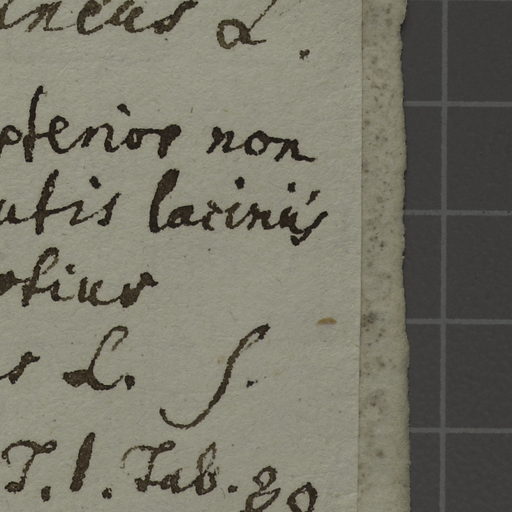 aneus L.
pterior non
utis laciniis
otius
s L. S.
T. 1. Tab. 80